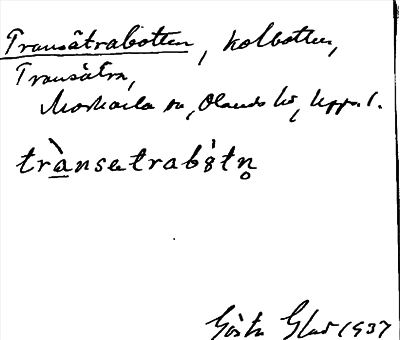 Transätrabotten, kolbotten,
Transätra,
Morkarla sn, Olands hd, Upps. l.
trànsætrabòtn̥
Gösta Glad 1937